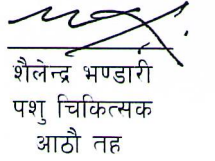 शैलेन्द्र भण्डारी
पशु चिकित्सक
आठौ तह